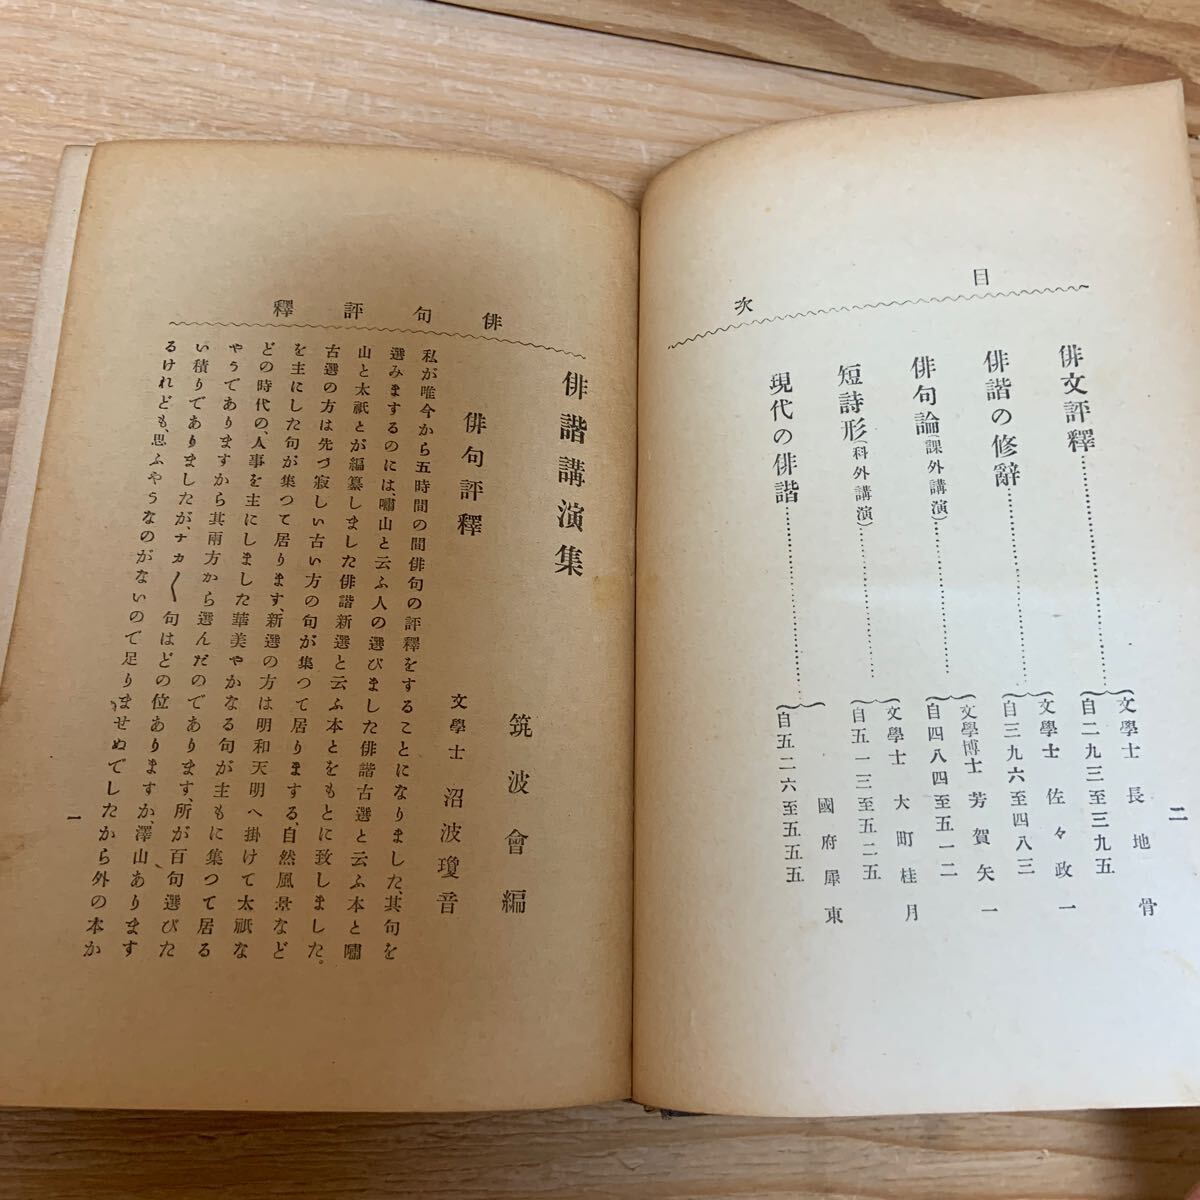 目次
俳文評釋………… 文學士 長地骨
自二九三至三九五
俳諧の修辭………… 文學士 佐々政一
自三九六至四八三
俳句論(課外講演)………… 文學博士 芳賀矢一
自四八四至五一二
短詩形(科外講演)………… 文學士 大町桂月
自五一三至五二五
現代の俳諧………… 國府犀東
自五二六至五五五
二
俳句評釋
俳諧講演集
筑波會編
俳句評釋
文學士 沼波瓊音
私が唯今から五時間の間俳句の評釋をすることになりました、其句を
選みまするのには、嘯山と云ふ人の選びました俳諧古選と云ふ本と嘯
山と太祇とが編纂しました俳諧新選と云ふ本とをもとに致しました。
古選の方は先づ寂しい古い方の句が集つて居りまする、自然風景など
を主にした句が集つて居ります、新選の方は明和天明へ掛けて太祇な
どの時代の、人事を主にしました華美やかなる句が主もに集つて居る
やうでありますから其兩方から選んだのであります、所が百句選びた
い積りでありましたが、ナカ〱句はどの位ありますか、澤山あります
るけれども、思ふやうなのがないので足りませぬでしたから外の本か
一